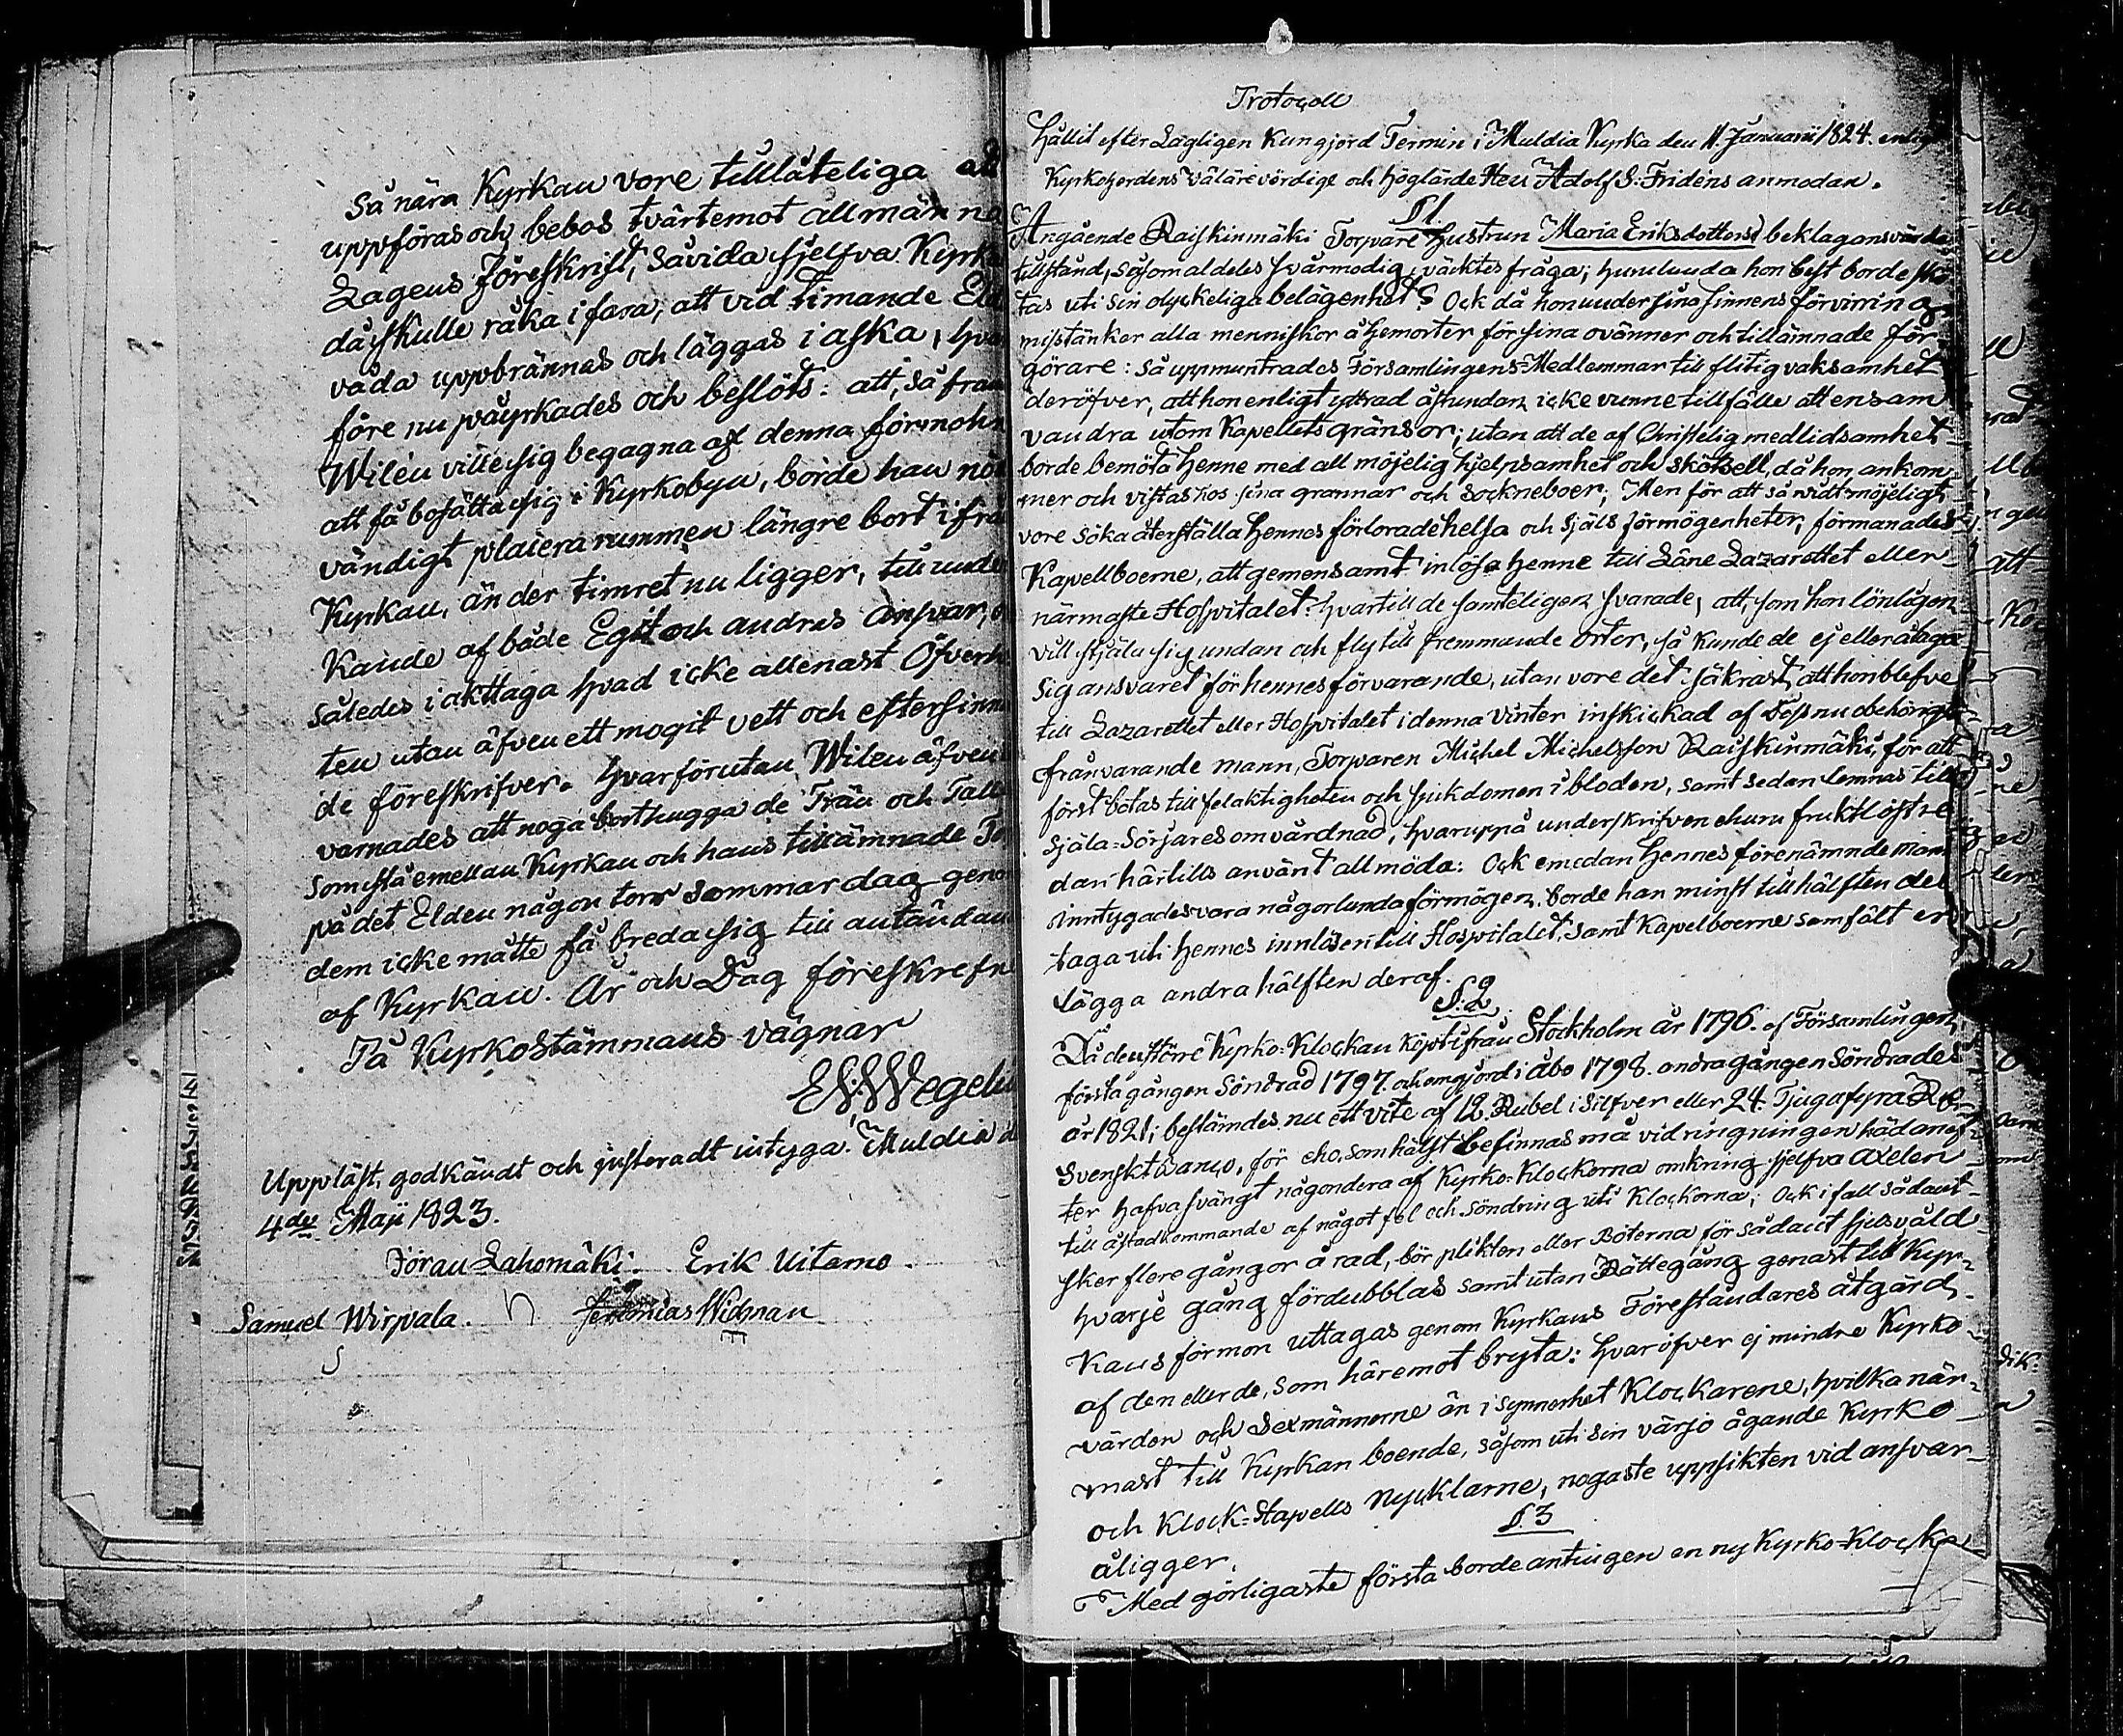 Så nära Kyrkan vore tillåteliga att
uppföras och bebos tvärtemot allmänna
Lagens föreskrift, såvida sjelfva Kyrka
då skulle råka i fara, att vid timande Eld
våda uppbrännas och läggas i aska, hvar
före nu påyrkades och beslöts: att, så fram
Wilén ville sig begagna af denna förmoh
att få bosätta sig i Kyrkobyn, borde han nöd
vändigt placera rummen längre bort ifrån
Kyrkan, än der timret nu ligger, till unde
kande af både Egit och andras ansvar, o
således iakttaga hvad icke allenast Öfverh
ten utan äfven ett mogit vett och eftersinn
de föreskrifver. Hvarförutan Wilen äfven
varnades att noga borthugga de Trän och Tall
som stå emellan Kyrkan och hans tillämnade To
på det Elden någon torr sommardag geno
dem icke måtte få breda sig till antändan
af Kyrkan. År och Dag föreskrefn
På Kyrkostämmans vägnar
Wegeli
Uppläst, godkändt och justeradt intyga. Muldia d
4de Maji 1823.
Jöran Lahomäki. Erik Uitamo.
Samuel Wirpala. Jeremias Widman
Protocoll
Hållit efter Lagligen Kungjord Termin i Muldia Kyrka den 11. Januarii 1824. enligt
Kyrkoherdens välärevördige och höglärde Herr Adolf S: Fridéns anmodan.
§.1.
Angående Raiskinmäki Torpare Hustrun Maria Eriksdotters beklagansvärda
tillstånd, såsom aldeles svårmodig, väcktes fråga; hurulunda hon best borde skö
tas uti sin olyckeliga belägenhet? Ock då hon under sina sinnens förvirring
misstänker alla menniskor å hemorter för sina ovänner och tillämnade för-
görare: så uppmuntrades Församlingens Medlemmar till flitig vaksamhet
deröfver, att hon enligt yttrad åstundan icke vunne tillfälle att ensam
vandra utom Kapellets gränsor; utan att de af Christelig medlidsamhet
borde bemöta Henne med all möjelig hjelpsamhet och skötsell, då hon ankom-
mer och vistas hos sina grannar och Sockneboer; Men för att så vidt möjeligt
vore söka återställa Hennes förlorade helsa och Själs förmögenheter, förmanades
Kapellboerne, att gemensamt inlösa Henne till Läne Lazarettet eller
närmaste Hospitalet: hvartill de samteligen svarade, att, som hon lönligen
vill stjäla sig undan och fly till fremmande Orter, så kunde de ej eller åtaga
sig ansvaret för hennes förvarande, utan vore det säkrast, att hon blefve
till Lazarettet eller Hospitalet i denna Vinter inskickad af Dess nu obehörigt
frånvarande mann, Torparen Michel Michelsson Raiskinmäki, för att
först botas till felaktigheten och sjukdomen i bloden, samt sedan lemnas till
Själa-Sörjares omvårdnad, hvaruppå underskrifven ehuru fruktlöst re-
dan härtills använt all möda: Ock emedan Hennes förenämnde man
inntygades vara någorlunda förmögen, borde han minst till hälften del-
taga uti hennes innlösen till Hospitalet, samt Kapelboerne samfält er-
lägga andra hälften deraf.
§.2.
Då den större Kyrko-Klockan köpt ifrån Stockholm år 1796. af Församlingen,
första gången Söndrad 1797. och omgjord i Åbo 1798. andra gången Söndrades
år 1821; bestämdes nu ett vite af 12. Rubel i Silfver eller 24. Tjugafyra R:
Svenskt Banco, för eho, som hälst befinnas må vid ringningen hädanef-
ter hafva svängt någondera af Kyrko-Klockorna omkring sjelfva axelen
till åstadkommande af något fel och söndring uti Klockorna; Ock ifall sådant
sker flere gångor å rad, bör plikten eller Böterna för sådant sjelsvåld
hvarje gång fördubblas samt utan Rättegång genast till Kyr-
kans förmon uttagas genom Kyrkans Föreståndares åtgärd
af den eller de, som häremot bryta: hvaröfver ej mindre Kyrko
värden och Sexmännerne än i synnerhet Klockarene, hvilka när-
mast till Kyrkan boende, såsom uti sin värjo ägande Kyrko
och Klock-Stapells nycklarne, nogaste uppsikten vid ansvar
åligger.
§.3
Med görligaste första borde antingen en ny Kyrko-Klocka